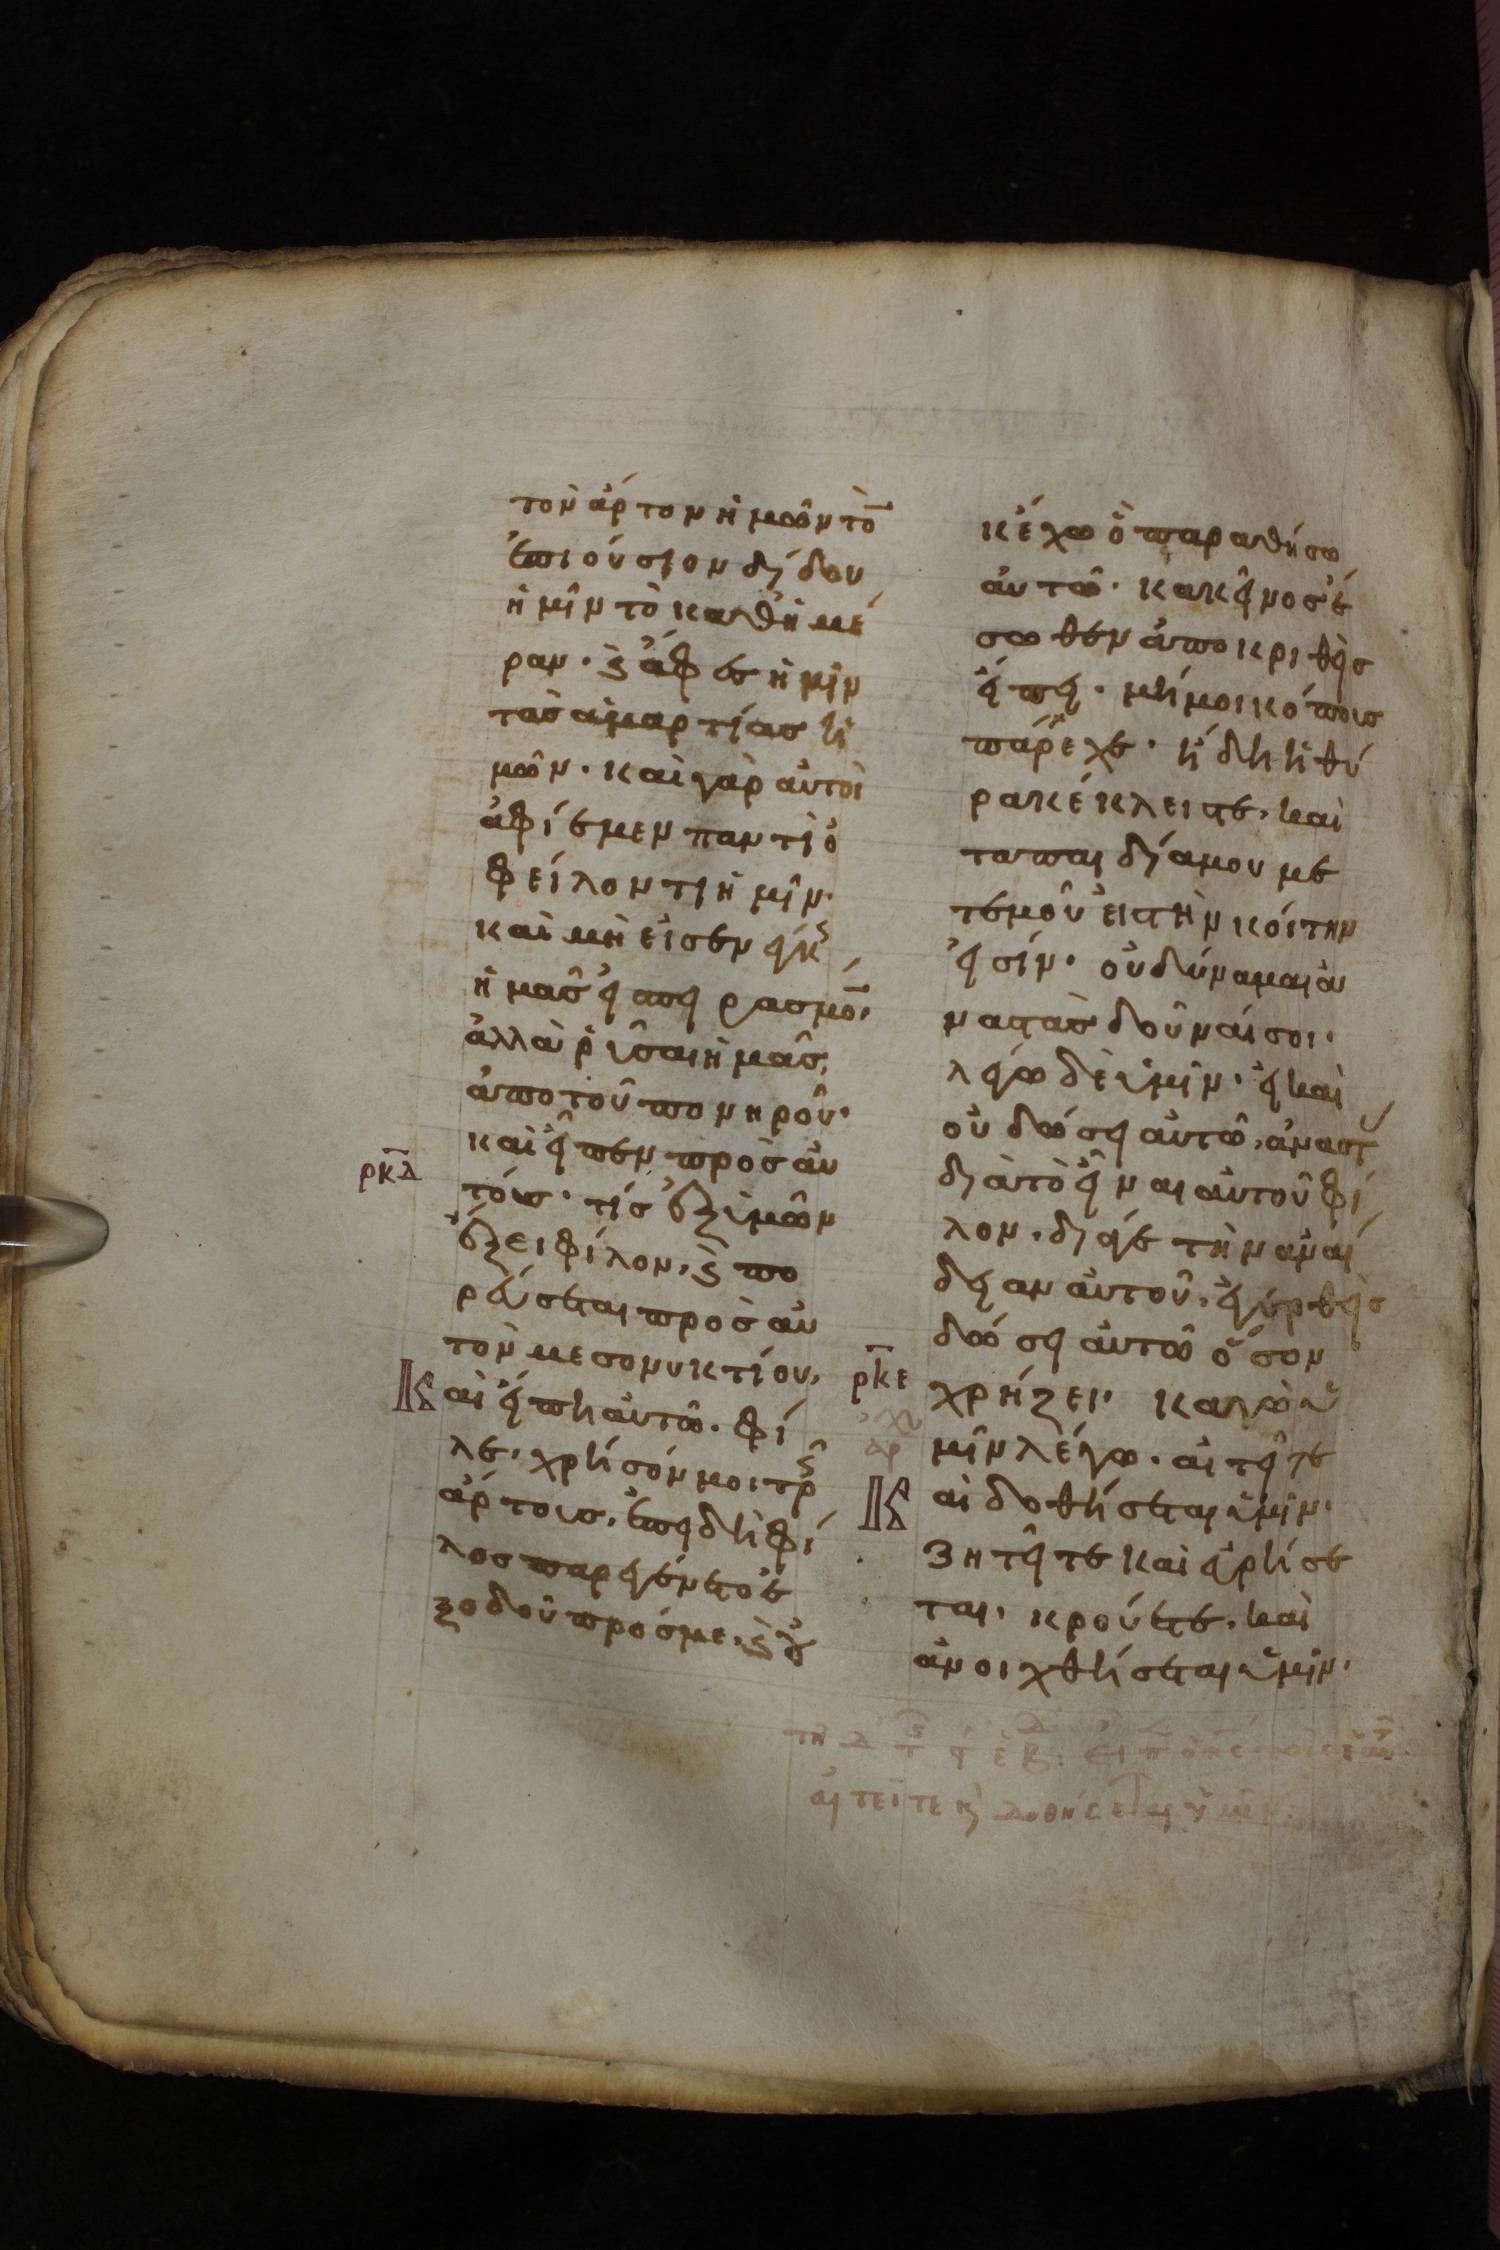 τὸν ἄρτον ἡμῶν τὸ̅
ἐπιούσιον δίδου
ἡμῖν τὸ καθημέ
ραν· ϛ ἄφες ἡμῖν
τὰς ἁμαρτίας ἡ
μῶν· καὶ γὰρ αὐτοὶ
ἀφίεμεν παντὶ ὀ
φείλοντι ἡμῖν·
καὶ μὴ εἰσενείκς
ἡμᾶς εἰς πειρασμό̅·
ἀλλὰ ῥῦσαι ἡμᾶς,
ἀπὸ τοῦ πονηροῦ·
ρκδ
καὶ εἶπεν πρὸς αὐ
τούς· τίς ἐξ ὑμῶν
ἕξει φίλον, ϛ πο
ρεύσεται πρὸς αὐ
τὸν μεσονυκτίου,
Καὶ εἴπη αὐτῶ· φί
λε, χρῆσόν μοι τρς
ἄρτους, ἐπειδὴ φί
λος παρεγένετο ἐ
ξοδοῦ πρός με, ϛ οὐ
κ ἔχω ὃ παραθήσω
αὐτῶ· κακεῖνος ἔ
σωθεν ἀποκριθεὶς
εἴπει· μή μοι κόπους
πάρεχε· ἤδη ἡ θύ
ρα κέκλεισται, καὶ
τα παιδία μου με
τ' ἐμοῦ εἰς τὴν κοίτην
εἰσίν· οὐ δύναμαι ἀ
ναστὰς δοῦναί σοι·
λέγω δὲ ὑμῖν· εἰ καὶ
οὐ δώσει αὐτῶ, ἀναστ
διὰ τὸ εἶναι αὐτοῦ φί
λον, διά γε τὴν ἀναί
δειαν αὐτοῦ, ἐγερθεὶς
δώσει αὐτῶ ὅσον
ρκε
χρήζει· καγὼ ὑ
μῖν λέγω· αἰτεῖτε
αρ
Και δοθήσεται ὑμῖν·
ζητεῖτε καὶ εὑρήσε
ται· κρούετε, καὶ
ἀνοιχθήσεται ὑμῖν·
αἰτεῖτε κ δοθήσεται ὑμῖν